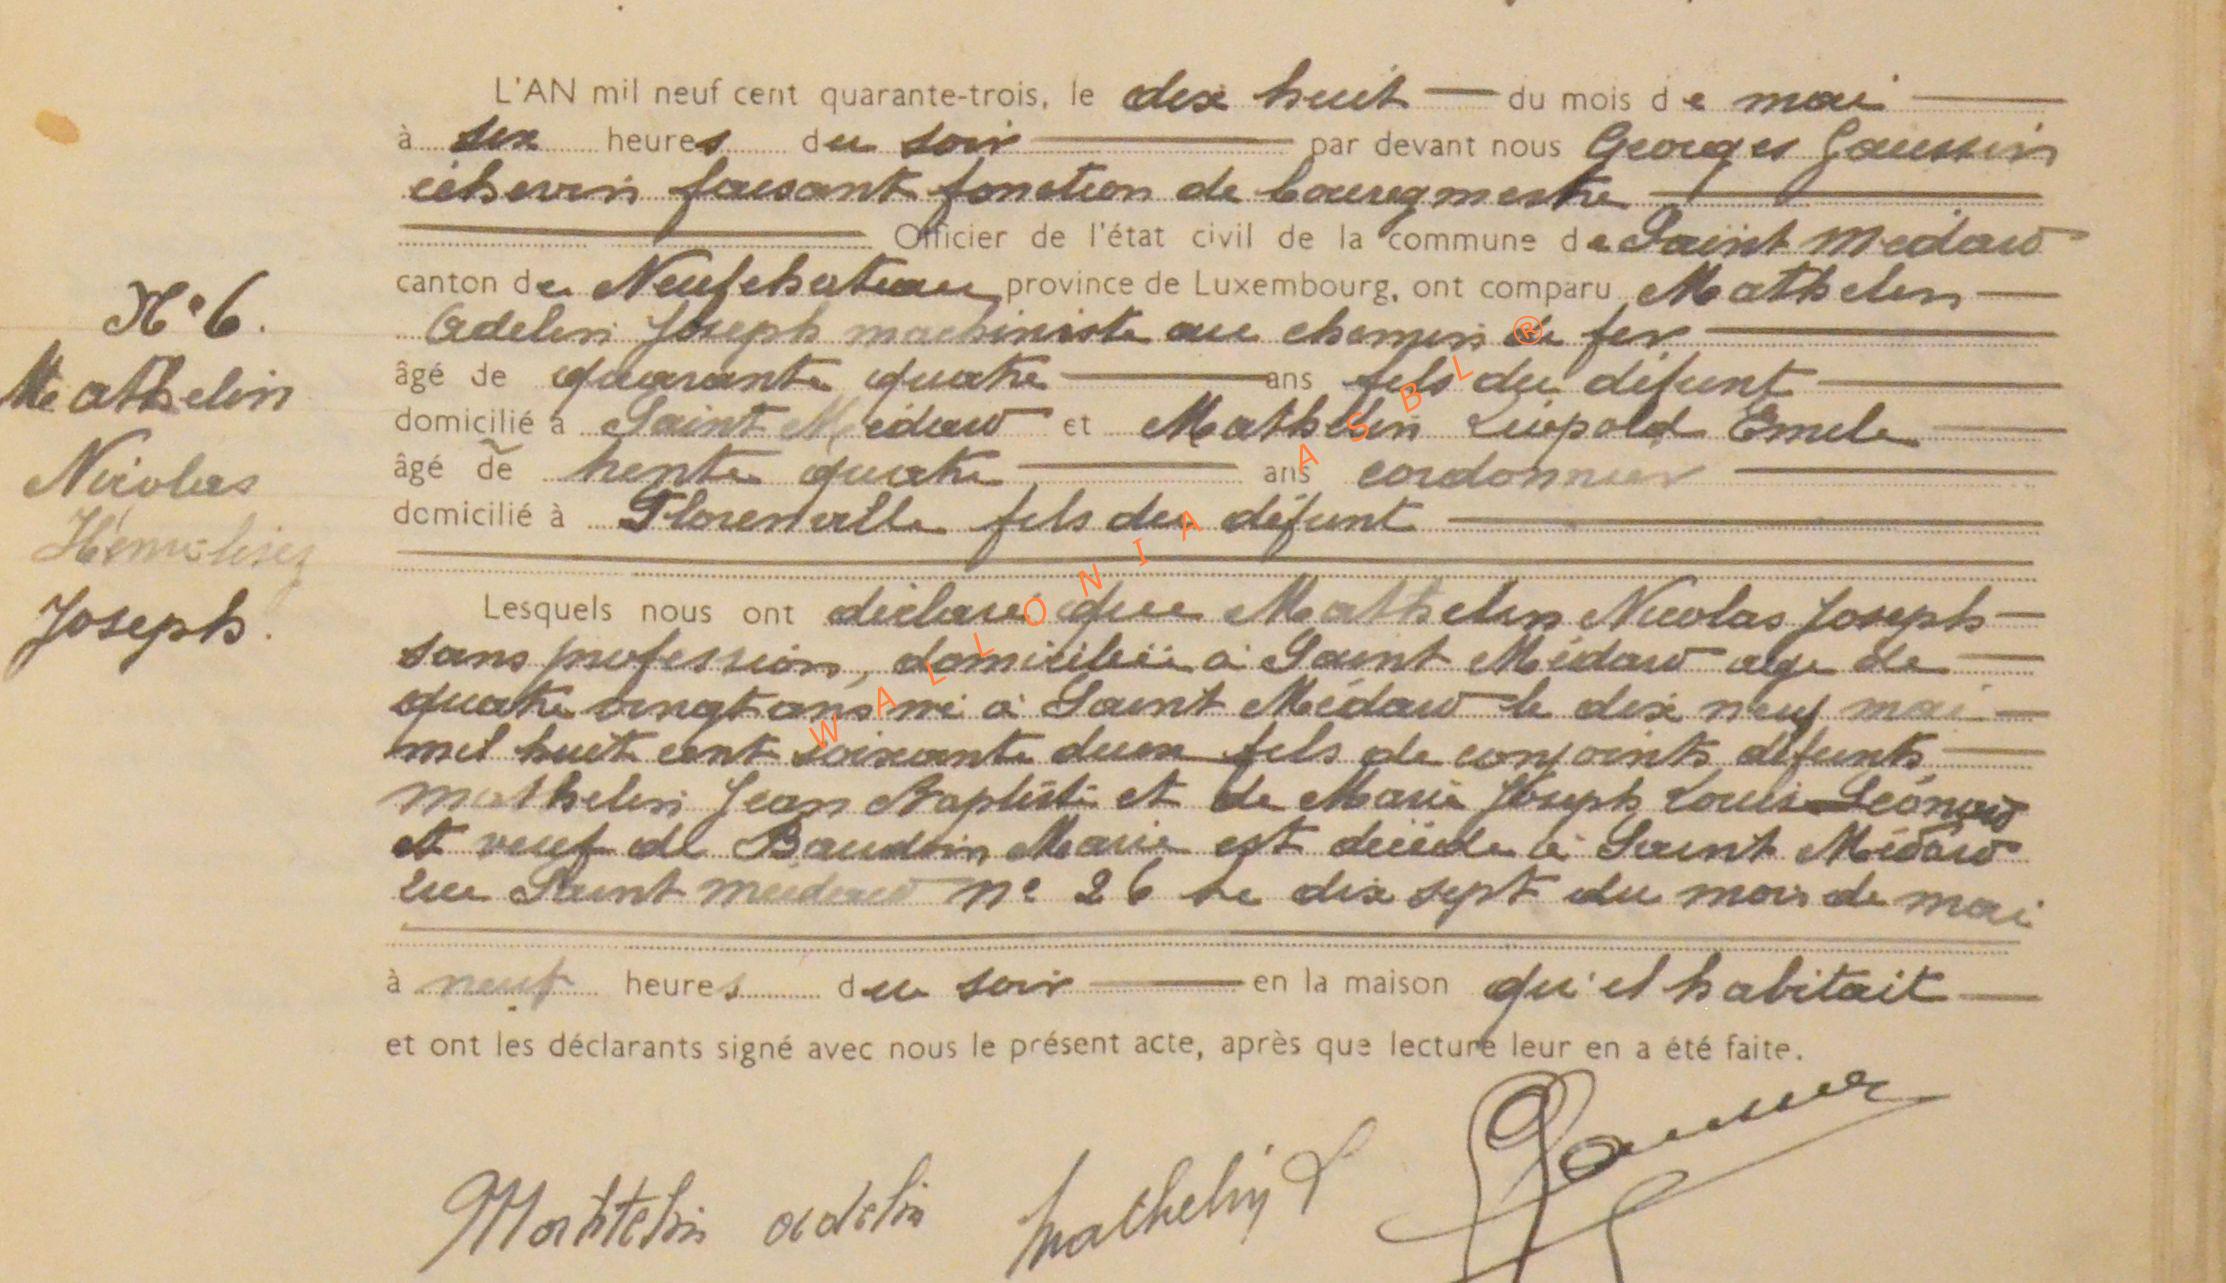 L'AN mil neuf cent quarante-trois, le dix huit du mois de mai
à six heures du soir par devant nous Georges Gaussin
échevin faisant fonction de bourgmestre
Officier de l'état civil de la commune de Saint Médard
canton de Neufchateau province de Luxembourg, ont comparu Mathelin
Adelin Joseph machiniste au chemin de fer
âgé de quarante quatre ans fils du défunt
domicilié à Saint Médard et Mathelin Léopold Emile
âgé de trente quatre ans cordonnier
domicilié à Florenville fils du défunt
N° 6.
Mathelin
Nicolas
Joseph.
Lesquels nous ont déclaré que Mathelin Nicolas Joseph
sans profession, domicilié à Saint Médard age de
quatre vingt ans né à Saint Médard le dix neuf mai
mil huit cent soixante deux fils de conjoints défunts
Mathelin Jean Baptiste et de Marie Joseph Louise Léonard
et veuf de Baudoin Marie est décédé à Saint Médard
rue Saint Médard n° 26 le dix sept du mois de mai
à neuf heures du soir en la maison qu'il habitait
et ont les déclarants signé avec nous le présent acte, après que lecture leur en a été faite.
Mathelin adelin Mathelin L
WALLONIA ASBL ®